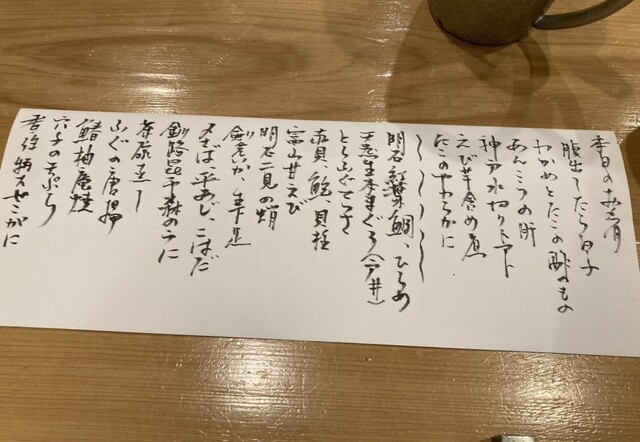 本日のお造り
腹出ししたら白子
わかめとたこの酢のもの
あんこうの肝
神戸水切りトマト
えび芋含め煮
たこのやわらかに
明石紅葉鯛、ひらめ
天然生本まぐろ
とらふぐてっさ
赤貝、鮑、貝柱
富山甘えび
明石二見の蛸
剣先いか、生下足
〆さば、平あじ、こはだ
釧路昆布森のうに
茶碗蒸し
ふぐの唐揚
鰆柚庵焼
穴子の天ぷら
香住 特大せこがに